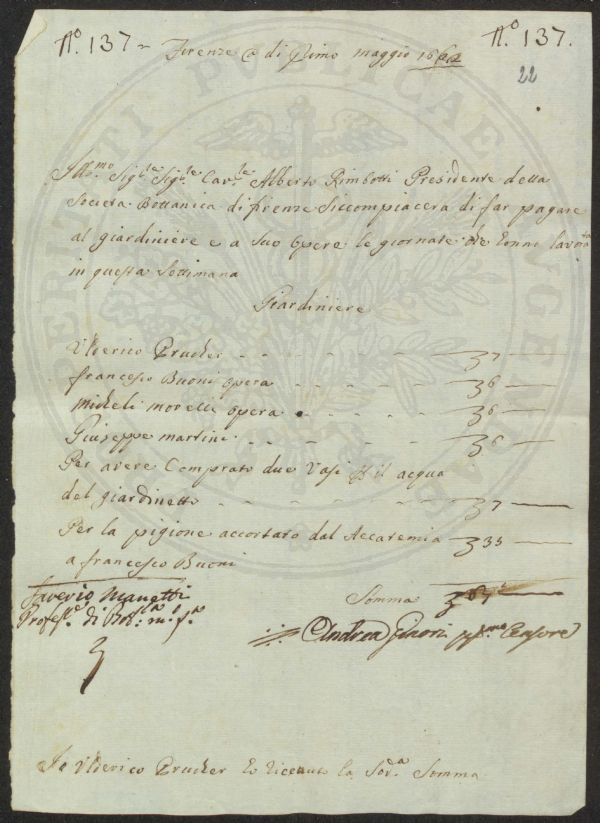 N.º 137 ~ Firenze @ di Primo Maggio N.º 137.
22
Ill.mo Sig.re Sig.re Cav.re Alberto Rimbotti Presidente della
Societa Bottanica di firenze Siccompiacerà di far pagare
al giardiniere e a suo opere le giornate che Ianno lavor.ta
in questa Settimana
Giardiniere
Ulderico Prucker 37
francesco Buoni opera 36
micheli morelli opera 36
Giuseppe martini 36
Per avere Comprato due Vasi il acqua
del giardinetto 37
Per la pigione accortato dal Accaremia 335
a francesco Buoni
Saverio Manetti
Profess.e di Bot.ca m.o p.a
Somma
Andrea Ginori pp.mo Censore
Io Ulderico Prucker Ho Riceuto la Sod.a Somma